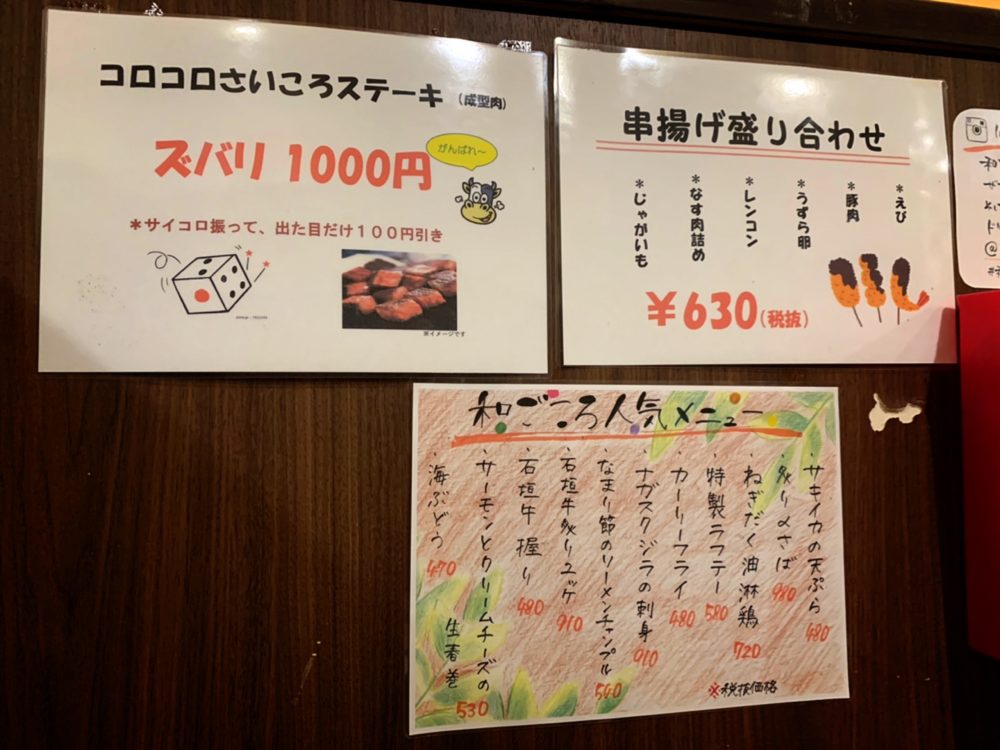 コロコロさいころステーキ (成型肉)
ズバリ 1000円
がんばれ～
*サイコロ振って、出た目だけ100円引き
※イメージです
串揚げ盛り合わせ
*えび
*豚肉
*うずら卵
*レンコン
*なす肉詰め
*じゃがいも
¥630(税抜)
和ごころ人気メニュー
・サキイカの天ぷら 480
・炙り〆さば 980
・ねぎだく油淋鶏 720
・特製ラフテー 580
・カーリーフライ 480
・ナガスクジラの刺身 910
・なまり節のソーメンチャンプル 540
・石垣牛炙りユッケ 910
・石垣牛握り 480
・サーモンとクリームチーズの
生春巻 530
・海ぶどう 470
※税抜価格